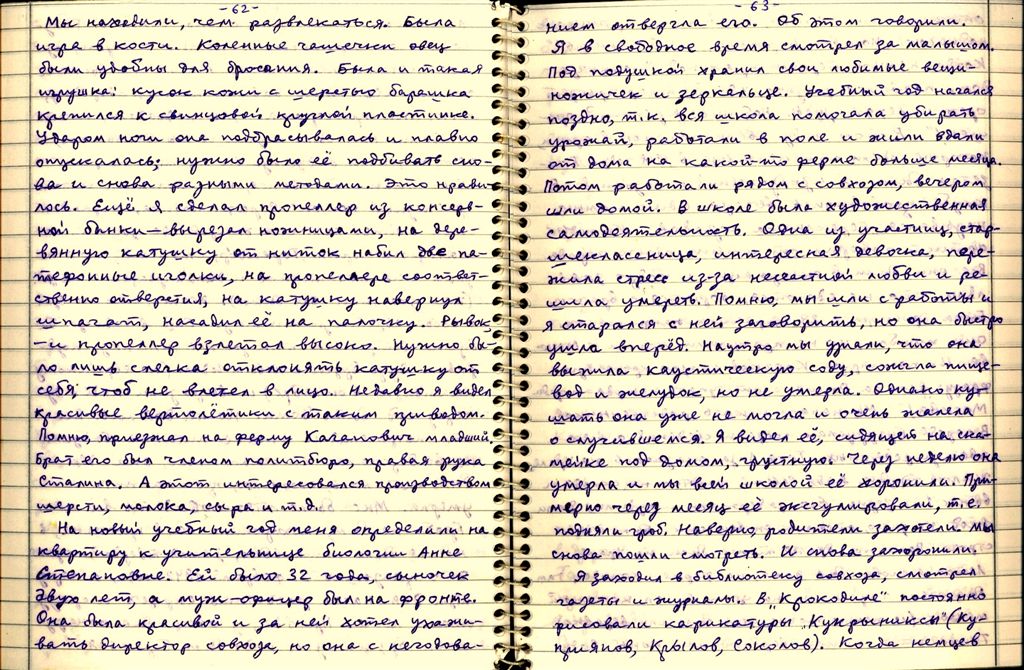 -62-
Мы находили, чем развлекаться. Была
игра в кости. Коленные чашечки овец
были удобны для бросания. Была и такая
игрушка: кусок кожи с шерстью барашка
крепился к свинцовой круглой пластинке.
Ударом ноги она подбрасывалась и плавно
опускалась; нужно было её подбивать сно-
ва и снова разными методами. Это нрави-
лось. Ещё я сделал пропеллер из консерв-
ной банки — вырезал ножницами, на дере-
вянную катушку от ниток набил две па-
тефонные иголки, на пропеллере соответ-
ственно отверстия, на катушку навернул
шпагат, насадил её на палочку. Рывок
- и пропеллер взлетал высоко. Нужно бы-
ло лишь слегка отклонять катушку от
себя, чтоб не влетел в лицо. Недавно я видел
красивые вертолётики с таким приводом.
Помню, приезжал на ферму Каганович младший.
Брат его был членом политбюро, правая рука
Сталина. А этот интересовался производством
шерсти, молока, сыра и т.д.
На новый учебный год меня определили на
квартиру к учительнице биологии Анне
Степановне. Ей было 32 года, сыночек
двух лет, а муж-офицер был на фронте.
Она была красивой и за ней хотел ухажи-
вать директор совхоза, но она с негодова-
-63-
нием отвергла его. Об этом говорили.
Я в свободное время смотрел за малышом.
Под подушкой хранил свои любимые вещи-
ножичек и зеркальце. Учебный год начался
поздно, т.к. вся школа помогала убирать
урожай, работали в поле и жили вдали
от дома на какой-то ферме больше месяца.
Потом работали рядом с совхозом, вечером
шли домой. В школе была художественная
самодеятельность. Одна из участниц, стар-
шеклассница, интересная девочка, пере-
жила стресс из-за несчастной любви и ре-
шила умереть. Помню, мы шли с работы и
я старался с ней заговорить, но она быстро
ушла вперёд. Наутро мы узнали, что она
выпила каустическую соду, сожгла пище-
вод и желудок, но не умерла. Однако ку-
шать она уже не могла и очень жалела
о случившемся. Я видел её, сидящей на ска-
мейке под домом, грустную. Через неделю она
умерла и мы всей школой её хоронили. При-
мерно через месяц её эксгумировали, т.е.
подняли гроб. Наверно, родители захотели. Мы
снова пошли смотреть. И снова захоронили.
Я заходил в библиотеку совхоза, смотрел
газеты и журналы. В „Крокодиле" постоянно
рисовали карикатуры „Кукрыниксы" (Ку-
приянов, Крылов, Соколов). Когда немцев